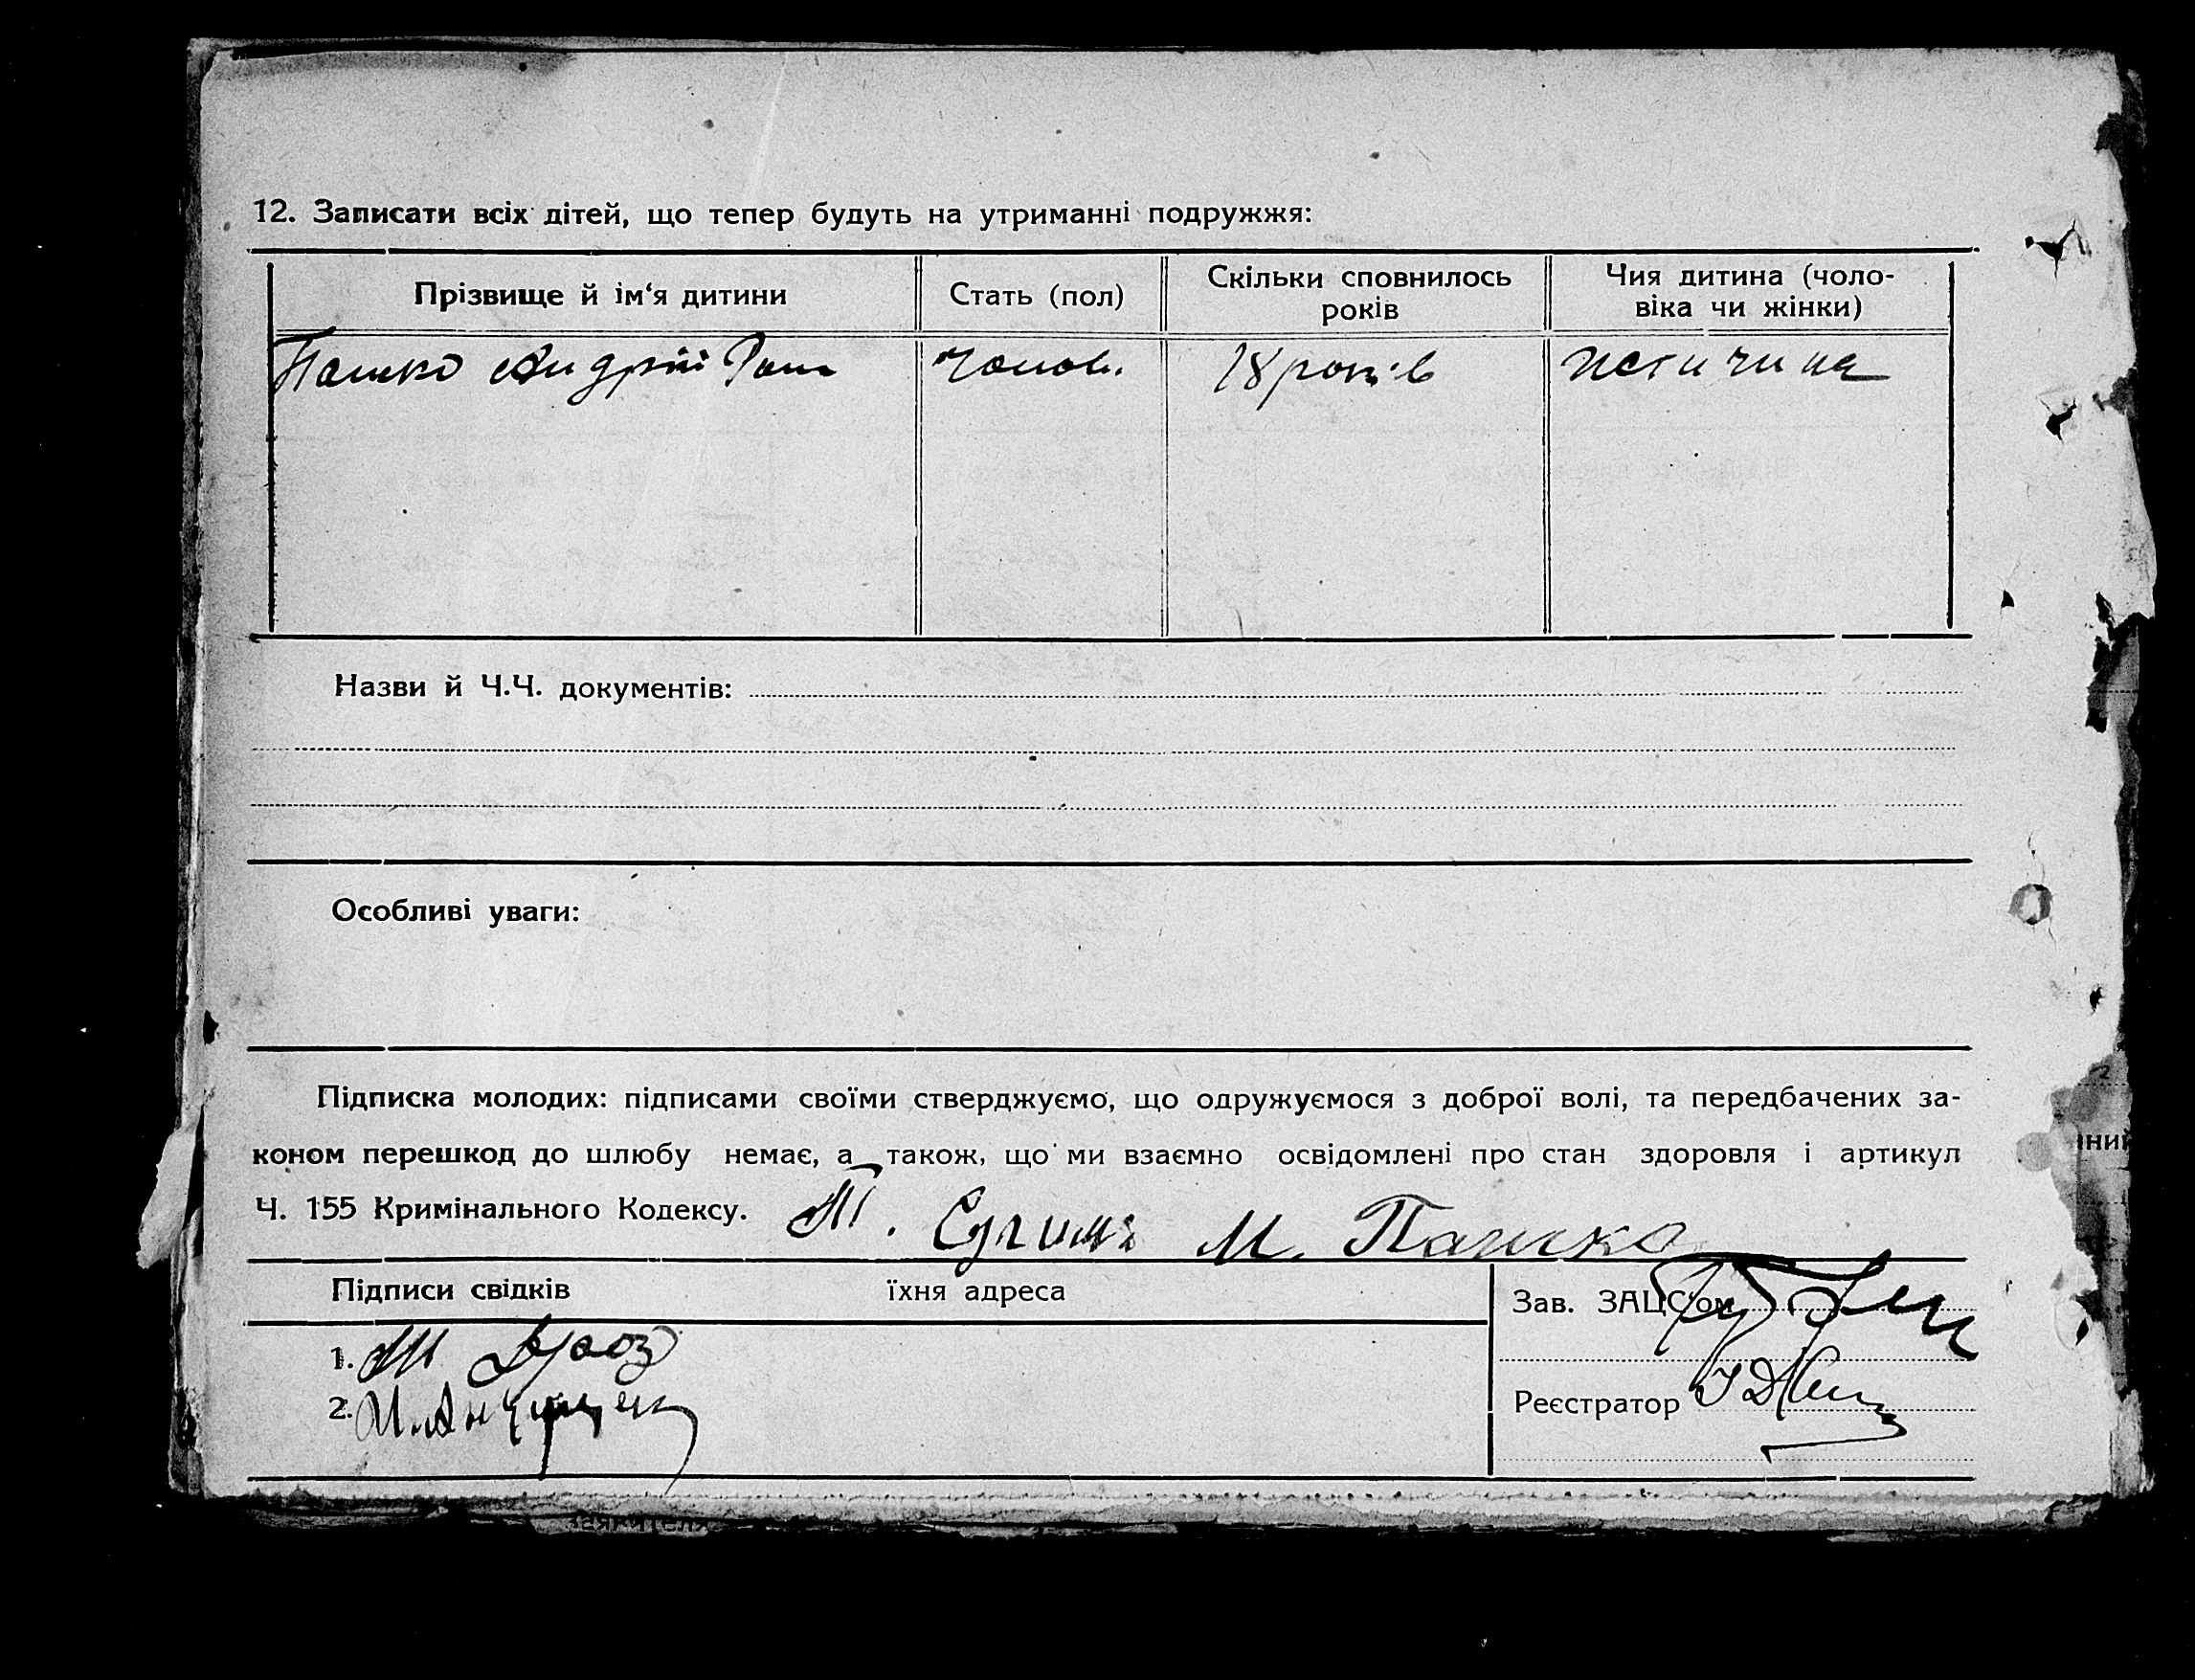 12. Записати всіх дітей, що тепер будуть на утриманні подружжя:
Прізвище й ім‘я дитини
Стать (пол)
Скільки сповнилось
років
Чия дитина (чоло-
віка чи жінки)
Пашко Андрій
Чолов.
18 років
Назви й Ч.Ч. документів:
Особливі уваги:
Підписка молодих: підписами своїми стверджуємо, що одружуємося з доброї волі, та передбачених за-
коном перешкод до шлюбу немає, а також, що ми взаємно освідомлені про стан здоровля і артикул
Ч. 155 Кримінального Кодексу.
М. Пашко
Підписи свідків
їхня адреса
Зав. ЗАЦС‘ом
1.
2.
Реєстратор
ний
заявителя